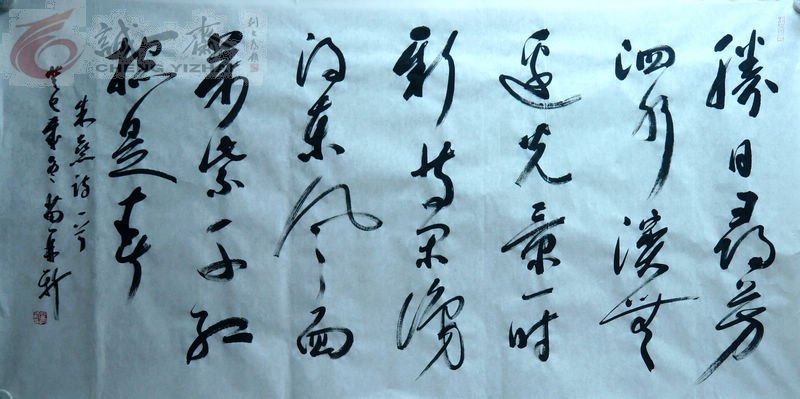 勝日尋芳
泗水濱無
邊光景一時
新等閑識
得東風面
萬紫千紅
總是春
朱熹詩一首
癸巳歲冬
誠一齋
CHENG YIZHAI